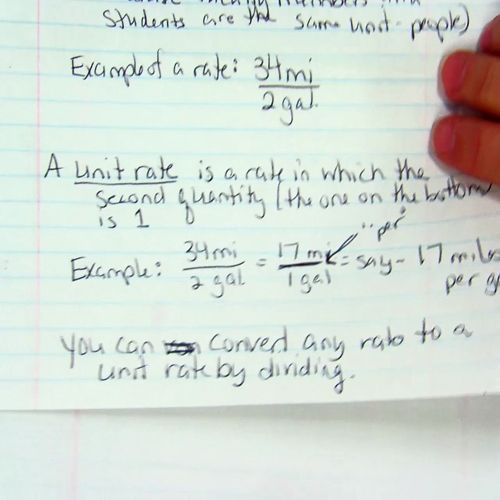 students are the same unit - people)
Example of a rate: 34mi
2 gal.
A unit rate is a rate in which the
second quantity (the one on the bottom
is 1
"per"
Example: 34mi / 2 gal = 17 mi / 1 gal = say - 17 miles
per ga
You can convert any rate to a
unit rate by dividing.